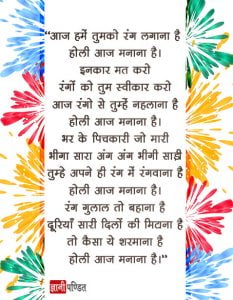 “आज हमें तुमको रंग लगाना है
होली आज मनाना है।
इनकार मत करो
रंगों को तुम स्वीकार करो
आज रंगो से तुम्हें नहलाना है
होली आज मनाना है।
भर के पिचकारी जो मारी
भीगा सारा अंग अंग भीगी साड़ी
तुम्हे अपने ही रंग में रंगवाना है
होली आज मनाना है।
रंग गुलाल तो बहाना है
दूरियाँ सारी दिलों की मिटाना है
तो कैसा ये शरमाना है
होली आज मनाना है।“
ज्ञानीपण्डित